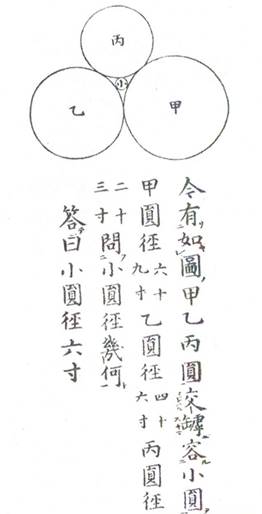 丙
小
乙
甲
今有如圖甲乙丙圓交罅容小圓
甲圓徑六十九寸乙圓徑四十六寸丙圓徑
二十三寸問小圓徑幾何
答曰小圓徑六寸